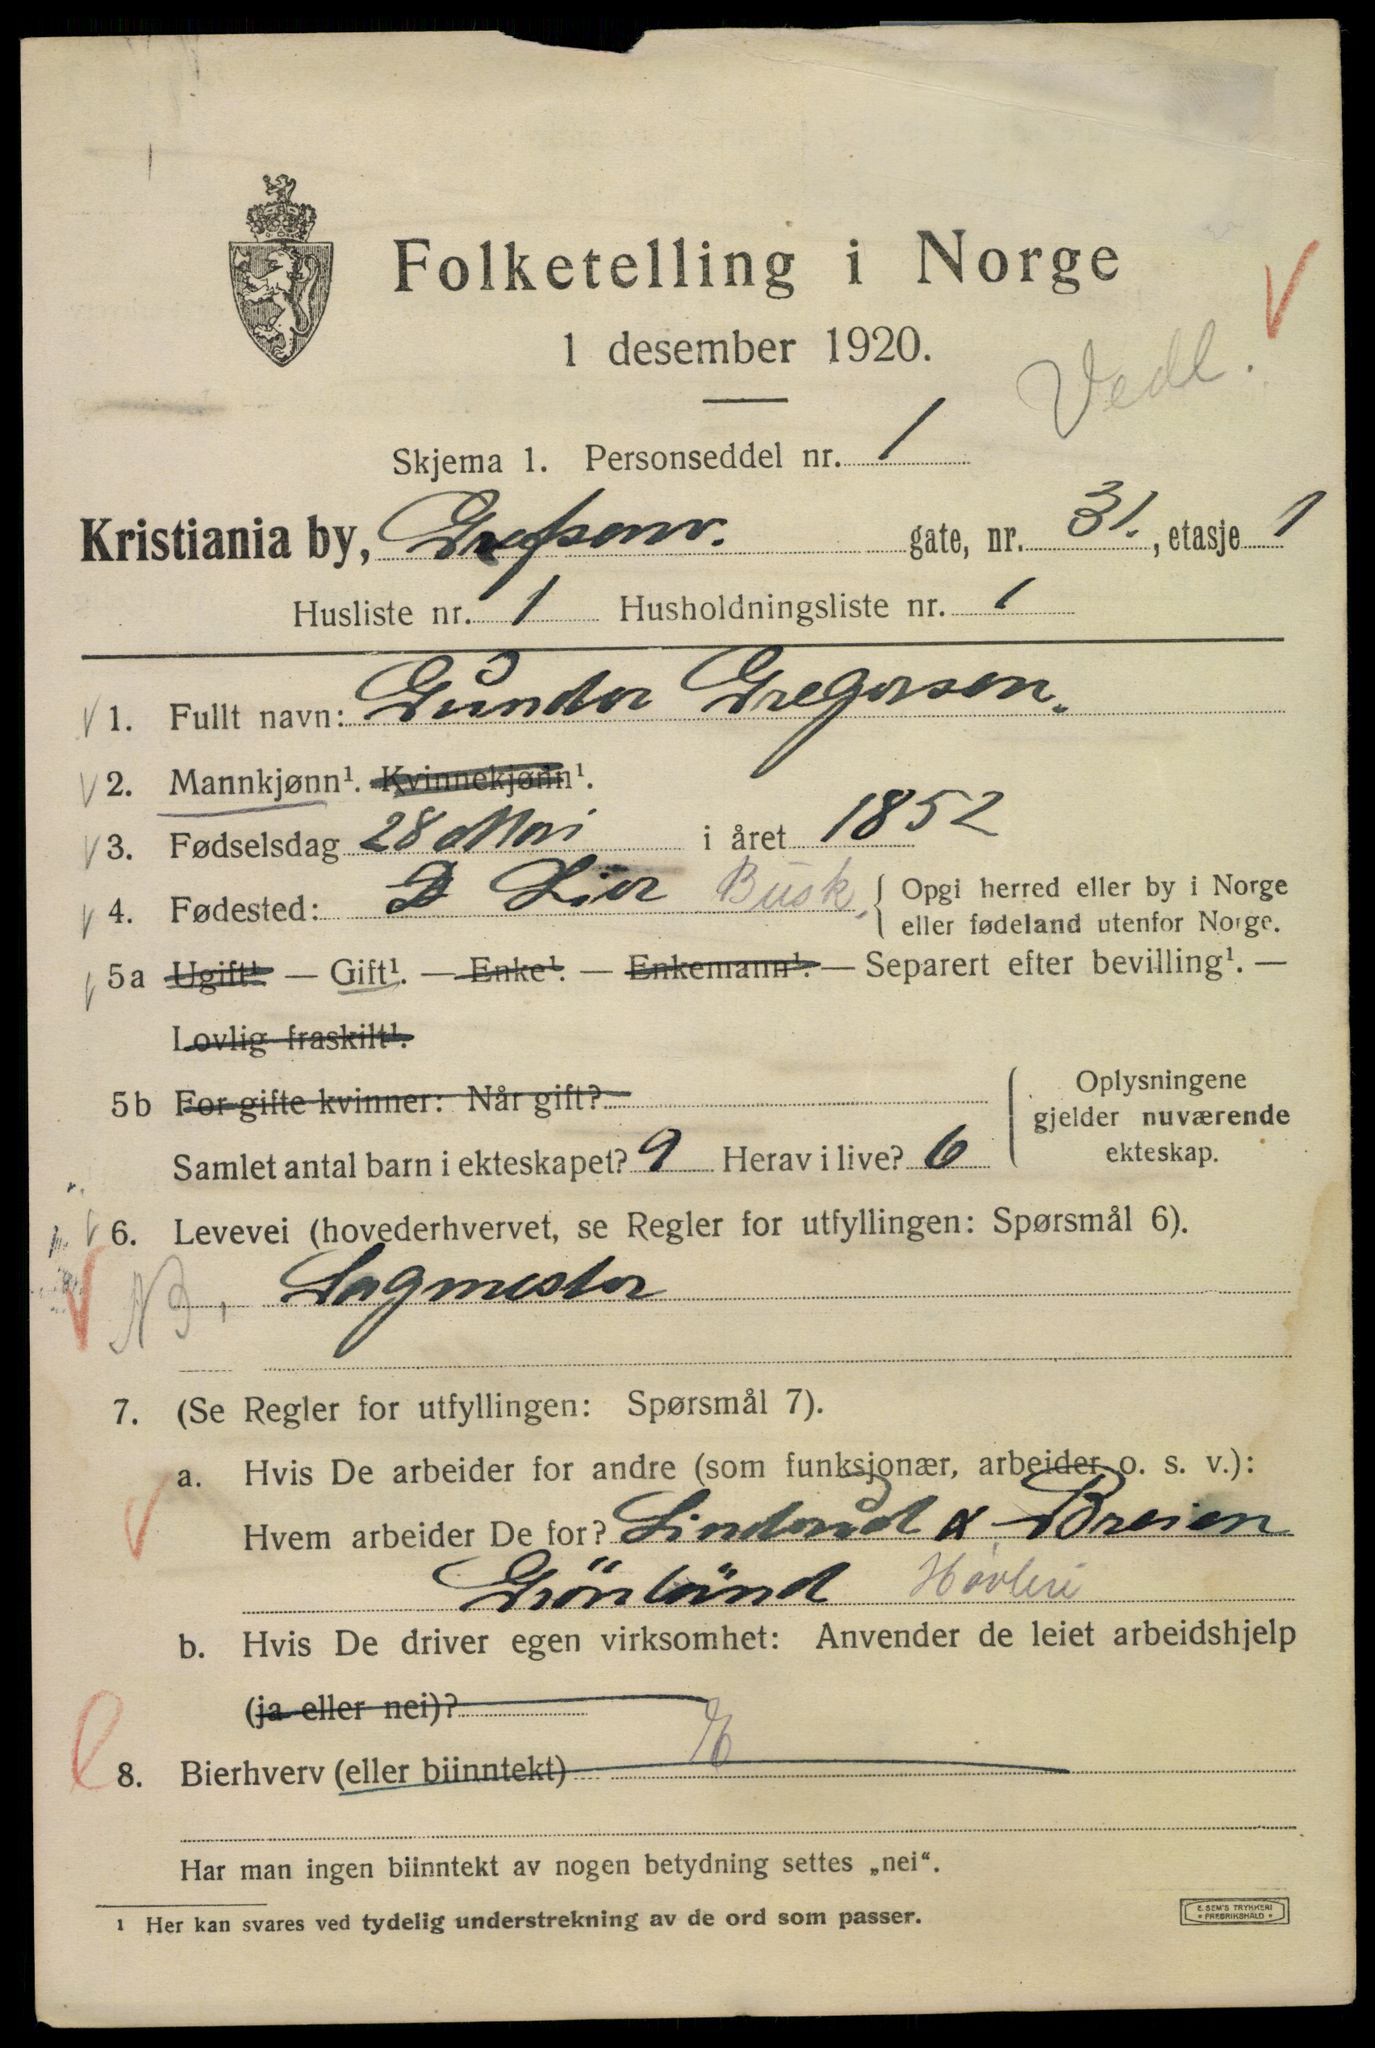 Folketelling i Norge
1 desember 1920.
Vedl.
Skjema 1. Personseddel nr. 1
Kristiania by, Grefsenv. gate, nr. 31., etasje 1
Husliste nr. 1 Husholdningsliste nr. 1
1. Fullt navn: Gundor Gregorsen.
2. Mannkjønn¹. Kvinnekjønn¹.
3. Fødselsdag 28 Mai i året 1852
4. Fødested: Lier Busk. Opgi herred eller by i Norge
eller fødeland utenfor Norge.
5a Ugift¹ — Gift¹. — Enke¹. — Enkemann¹. — Separert efter bevilling¹. —
Lovlig fraskilt¹.
5b For gifte kvinner: Når gift?
Samlet antal barn i ekteskapet? 9 Herav i live? 6
Oplysningene
gjelder nuværende
ekteskap.
6. Levevei (hovederhvervet, se Regler for utfyllingen: Spørsmål 6).
NB, Sagmester
7. (Se Regler for utfyllingen: Spørsmål 7).
a. Hvis De arbeider for andre (som funksjonær, arbeider o. s. v.):
Hvem arbeider De for? Lindrud & Breien
Grönland Høvleri
b. Hvis De driver egen virksomhet: Anvender de leiet arbeidshjelp
(ja eller nei)?
8. Bierhverv (eller biinntekt)
Har man ingen biinntekt av nogen betydning settes „nei“.
¹ Her kan svares ved tydelig understrekning av de ord som passer.
E. SEM'S TRYKKERI
• FREDRIKSHALD •